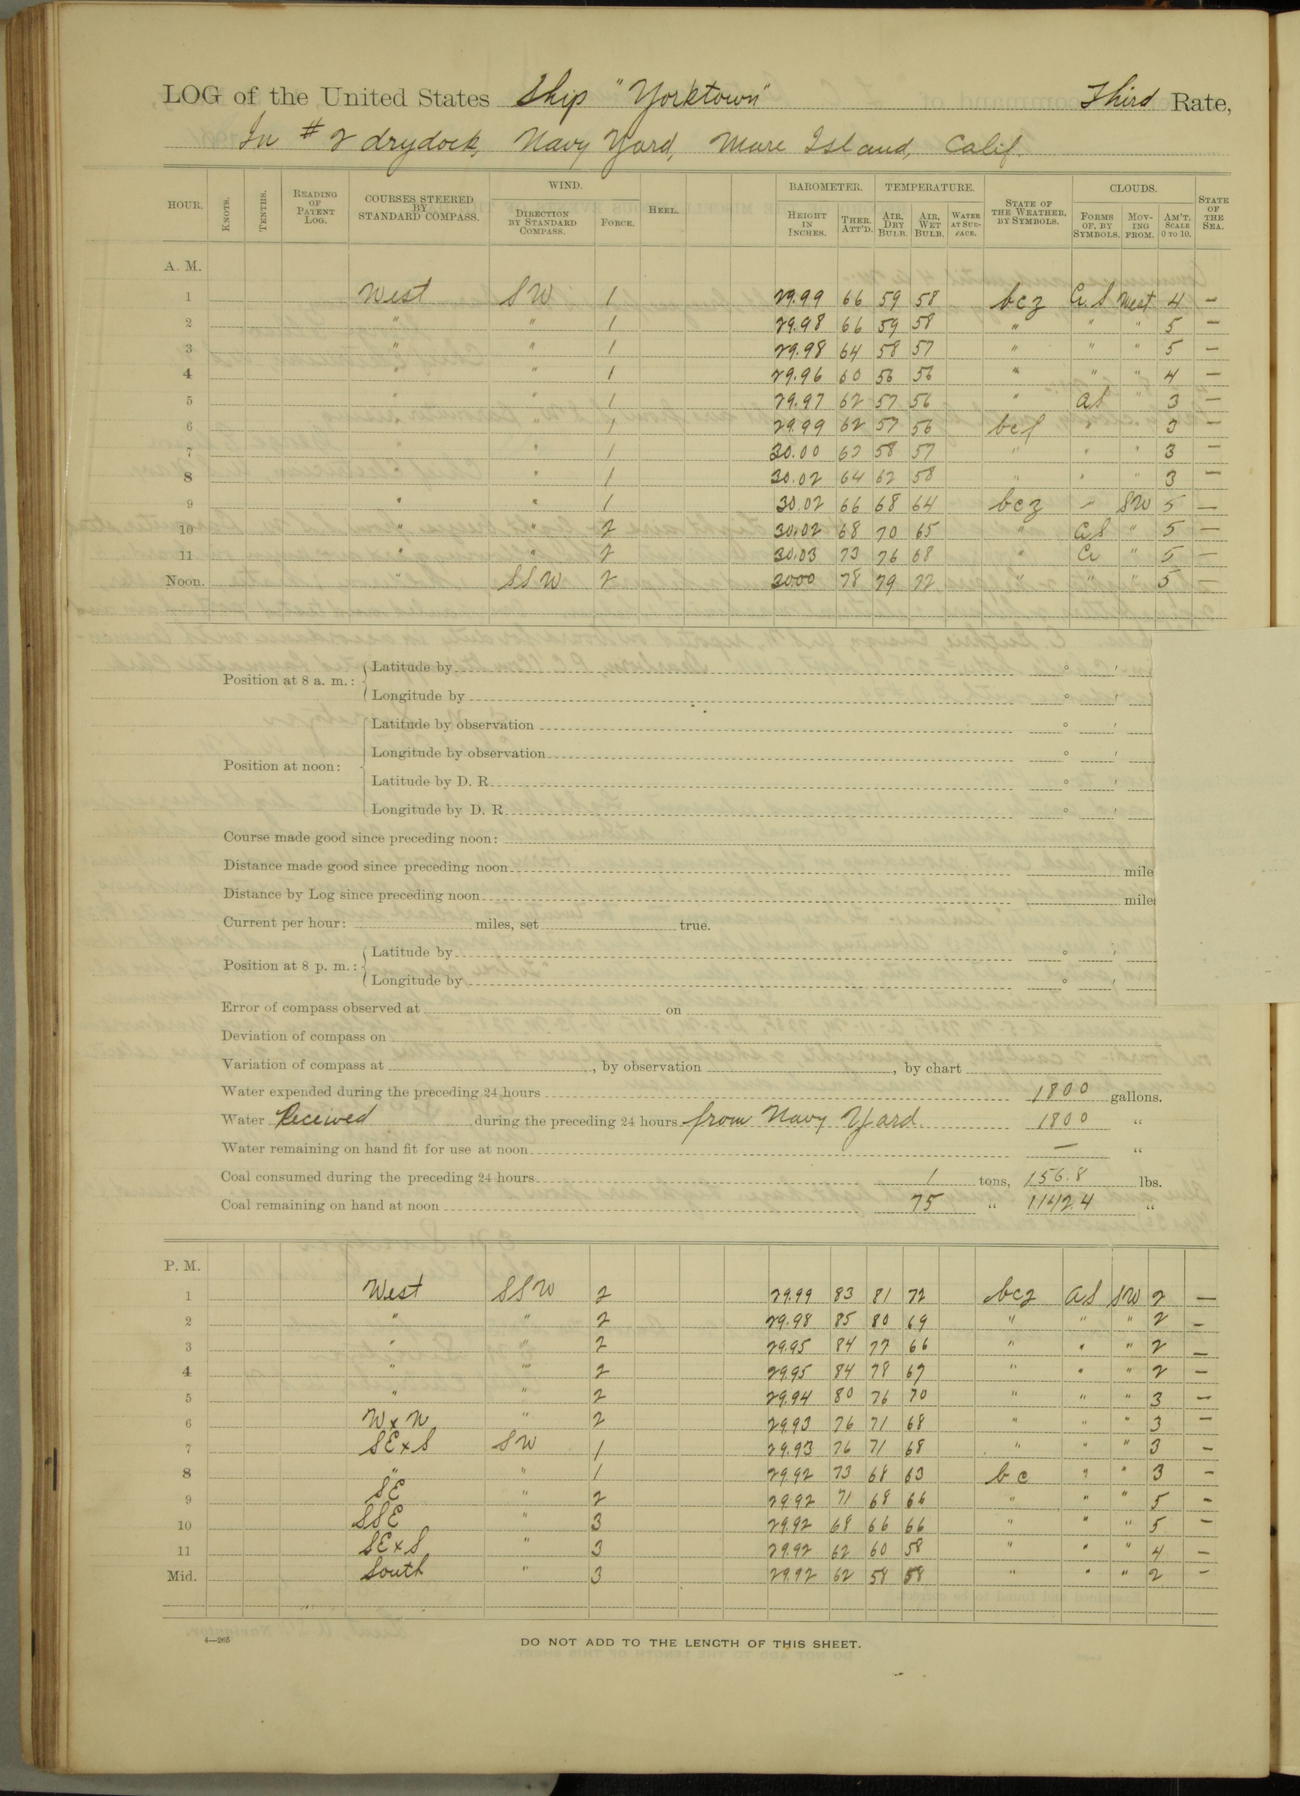 LOG of the United States Ship "Yorktown" Third Rate,
In # 2 drydock, Navy Yard, Mare Island, Calif.
HOUR. KNOTS. TENTHS. READING OF PATENT LOG. COURSES STEERED BY STANDARD COMPASS. WIND. DIRECTION BY STANDARD COMPASS. FORCE. HEEL. BAROMETER. HEIGHT IN INCHES. THER. ATT'D. TEMPERATURE. AIR, DRY BULB. AIR, WET BULB. WATER AT SURFACE. STATE OF THE WEATHER, BY SYMBOLS. CLOUDS. FORMS OF, BY SYMBOLS. MOVING FROM. AM'T. SCALE 0 TO 10. STATE OF THE SEA.
A. M.
1 West SW 1 29.99 66 59 58 bcz West 4 —
2 " " 1 29.98 66 59 58 " " " 5 —
3 " " 1 29.98 64 58 57 " " " 5 —
4 " " 1 29.96 60 56 56 " " " 4 —
5 " " 1 29.97 62 57 56 " aS " 3 —
6 " " 1 29.99 62 57 56 " " 3 —
7 " " 1 30.00 63 58 57 " " " 3 —
8 " 1 30.02 64 62 58 " " " 3 —
9 " " 1 30.02 66 68 64 bcz " SW 5 —
10 " " 2 30.02 68 70 65 " " 5 —
11 " " 2 30.03 73 76 68 " " 5 —
Noon. " SSW 2 3000 78 79 72 " " " 5 —
Position at 8 a. m.: Latitude by ° '
Longitude by ° '
Position at noon: Latitude by observation ° '
Longitude by observation ° '
Latitude by D. R. ° '
Longitude by D. R. ° '
Course made good since preceding noon:
Distance made good since preceding noon mile
Distance by Log since preceding noon mile
Current per hour: miles, set true.
Position at 8 p. m.: Latitude by ° '
Longitude by ° '
Error of compass observed at on
Deviation of compass on
Variation of compass at , by observation , by chart
Water expended during the preceding 24 hours 1800 gallons.
Water Received during the preceding 24 hours from Navy Yard. 1800 "
Water remaining on hand fit for use at noon — "
Coal consumed during the preceding 24 hours 1 tons, 156.8 lbs.
Coal remaining on hand at noon 75 " 1142.4 "
P. M.
1 West SSW 2 29.99 83 81 72 bcz aS SW 2 —
2 " " 2 29.98 85 80 69 " " " 2 —
3 " " 2 29.95 84 77 66 " " " 2 —
4 " " 2 29.95 84 78 67 " " " 2 —
5 " " 2 29.94 80 76 70 " " " 3 —
6 WxN " 2 29.93 76 71 68 " " " 3 —
7 SExS SW 1 29.93 76 71 68 " " " 3 —
8 " " 1 29.92 73 68 63 bc " " 3 —
9 SE " 2 29.92 71 68 66 " " " 5 —
10 SSE " 3 29.92 68 66 66 " " " 5 —
11 SExS " 3 29.92 62 60 58 " " " 4 —
Mid. South " 3 29.92 62 58 58 " " " 2 —
4—265
DO NOT ADD TO THE LENGTH OF THIS SHEET.